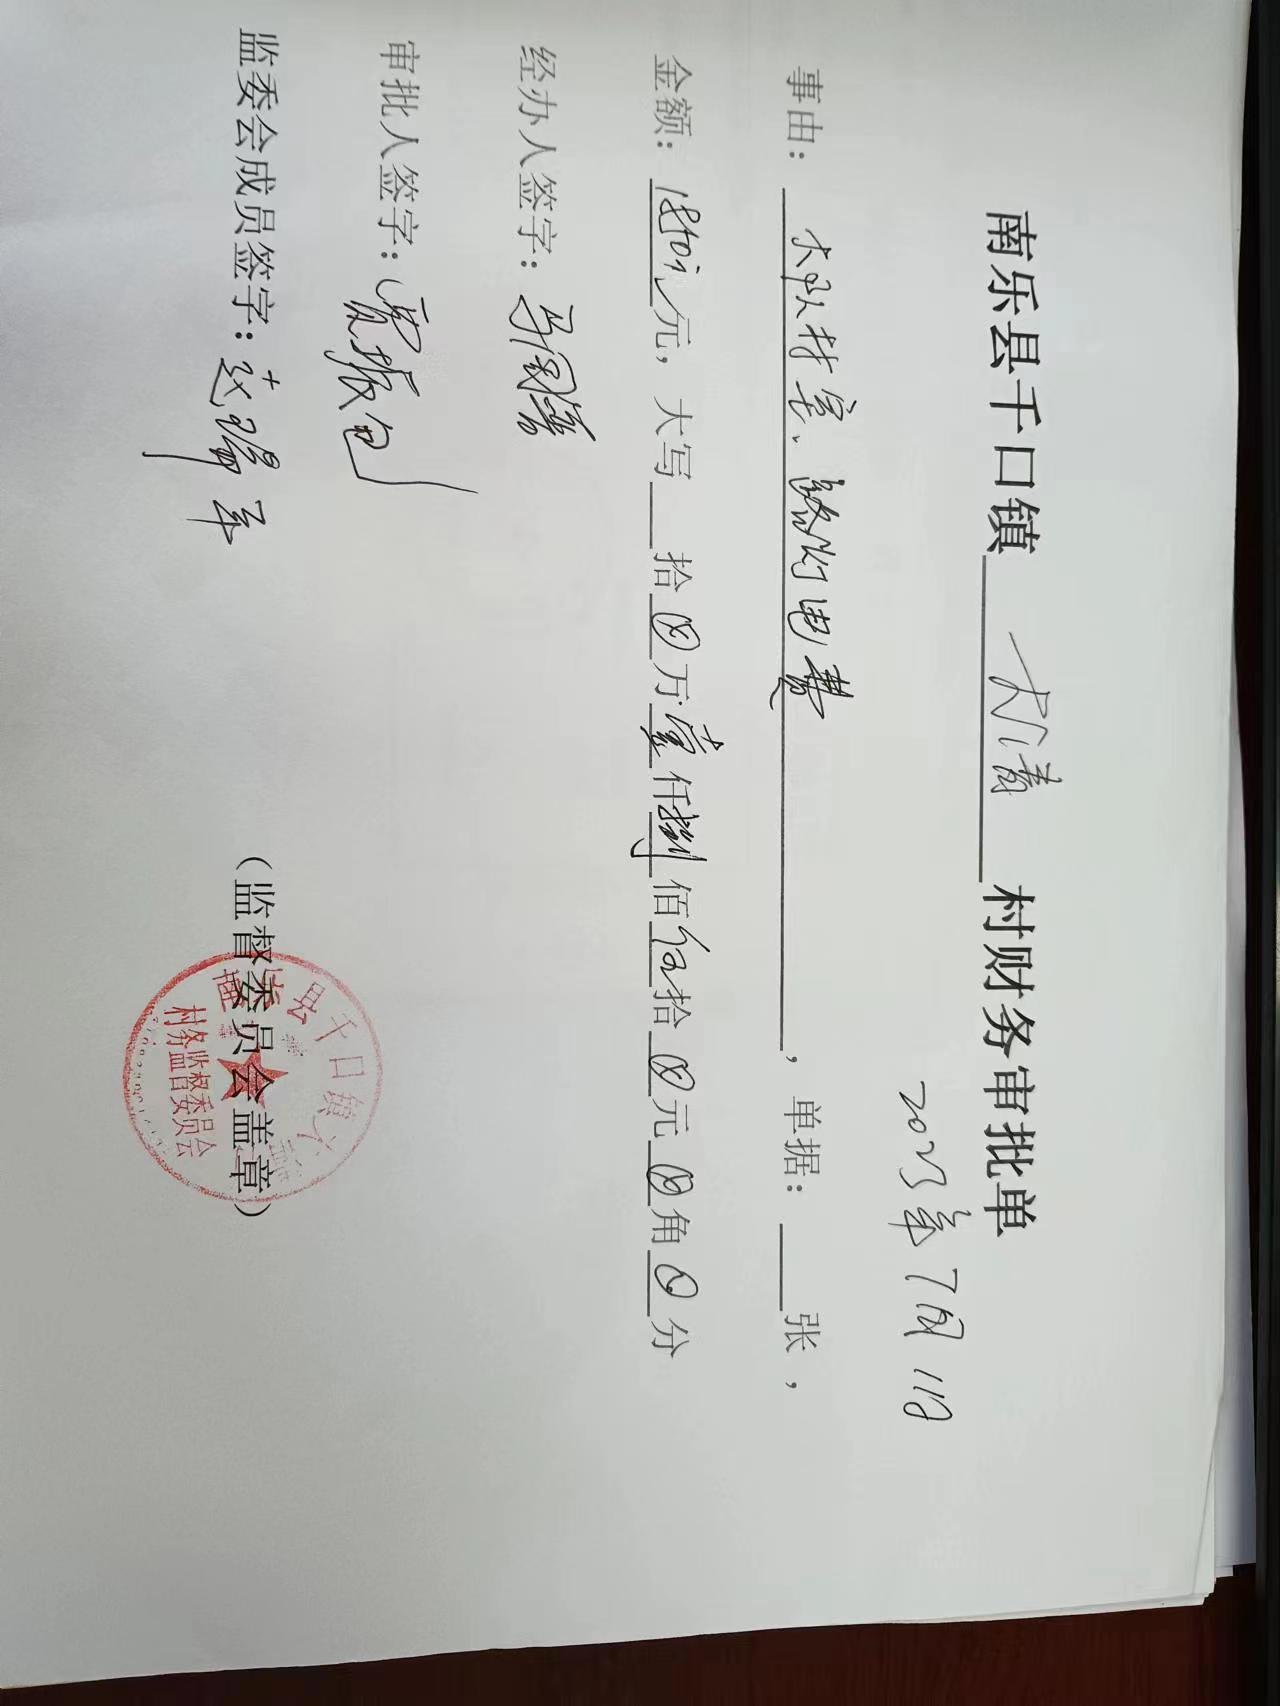 南乐县千口镇 大清 村财务审批单
2025年7月11日
事由：大队村室、路灯电费，单据：张，
金额：1850元，大写 拾⊗万壹仟捌佰伍拾⊗元⊗角⊗分
经办人签字：
审批人签字：贾振包
监委会成员签字：赵瑞
（监督委员会盖章）
县千口镇大
村务监督委员会